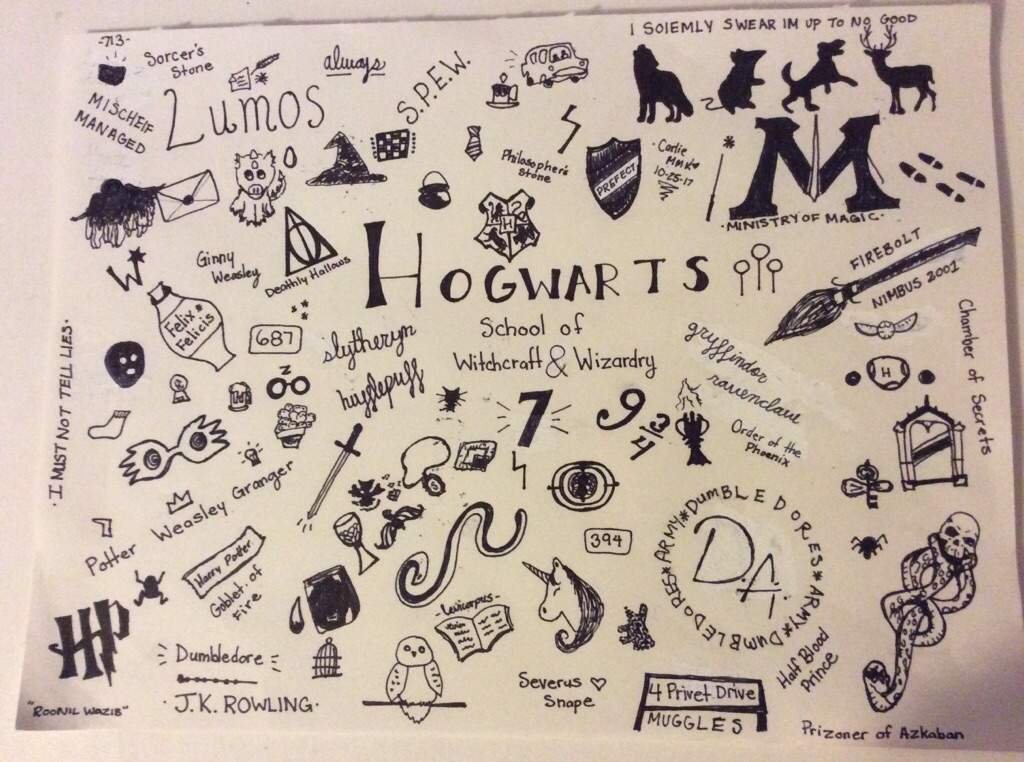 I SOlEMLY SWEAR IM UP TO NO GOOD
-713-
Sorcer's
Stone
always
S.P.E.W.
MISCHEIF
MANAGED
Lumos
Philosopher's
Stone
PREFECT
Carlie
10-25-17
M
MINISTRY OF MAGIC
W
Ginny
Weasley
Deathly Hallows
H
HOGWARTS
School of
Witchcraft & Wizardry
FIREBOLT
NIMBUS 2001
Felix
Felicis
687
slytheryn
hufflepuff
gryffindor
ravenclaw
Chamber of Secrets
H
I MIST NOT TELL LIES.
Z
7
9 3/4
Order of the
Phoenix
Weasley Granger
Potter
394
DUMBLEDORES*ARMY*DUMBLEDORES*ARMY*
D.A.
Harry Potter
Goblet of
Fire
HP
-levicorpus-
Dumbledore
Half Blood
Prince
J.K. ROWLING.
"ROONIL WAZIB"
Severus ♡
Snape
4 Privet Drive
MUGGLES
Prizoner of Azkaban